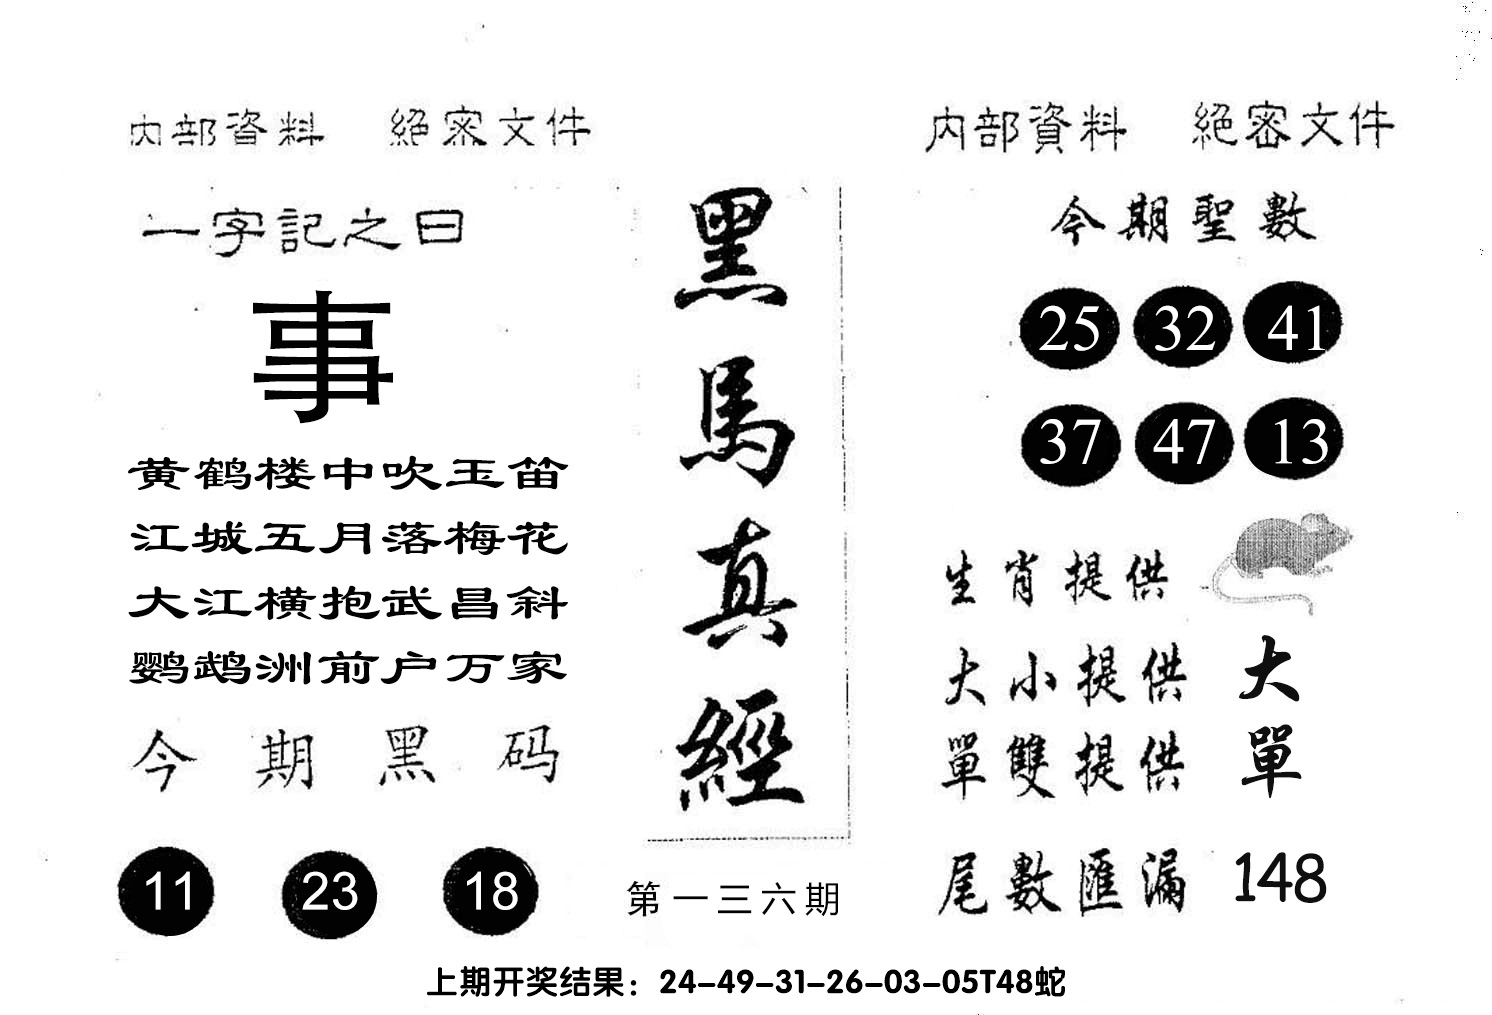 内部資料 絕密文件
一字記之曰
事
黄鹤楼中吹玉笛
江城五月落梅花
大江横抱武昌斜
鹦鹉洲前户万家
今期黑码
11 23 18
黑馬真經
第一三六期
内部資料 絕密文件
今期聖數
25 32 41
37 47 13
生肖提供
大小提供 大
單雙提供 單
尾數匯漏 148
上期开奖结果：24-49-31-26-03-05T48蛇